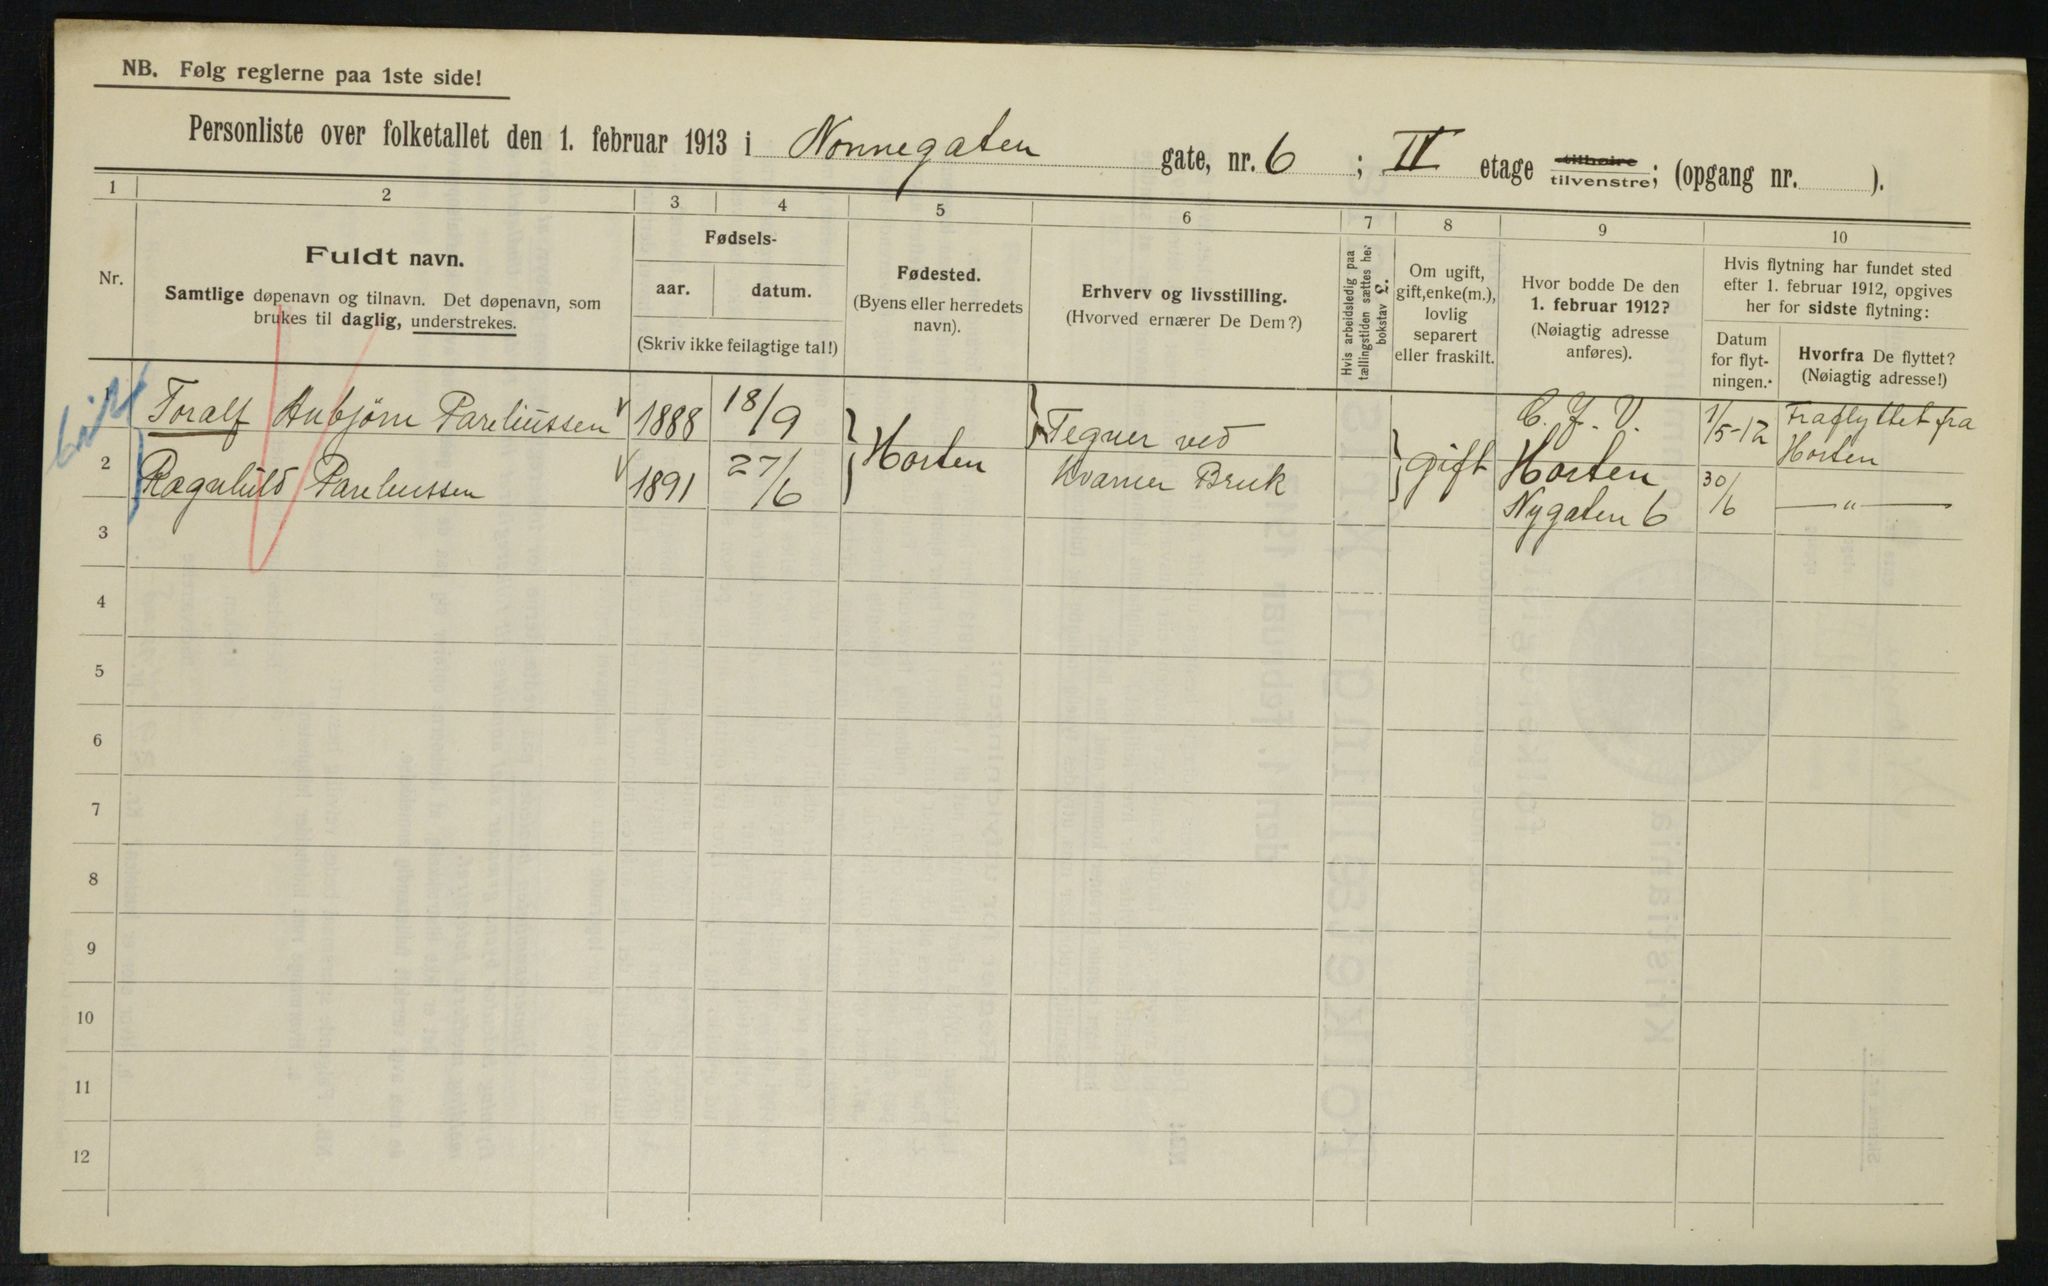 NB. Følg reglerne paa 1ste side!
Personliste over folketallet den 1. februar 1913 i Nonnegaten gate, nr. 6 ; II etage tilhøire tilvenstre; (opgang nr. ).
1 2 3 4 5 6 7 8 9 10
Nr.
Fuldt navn.
Samtlige døpenavn og tilnavn. Det døpenavn, som
brukes til daglig, understrekes.
Fødsels-
aar. datum.
(Skriv ikke feilagtige tal!)
Fødested.
(Byens eller herredets
navn).
Erhverv og livsstilling.
(Hvorved ernærer De Dem?)
Hvis arbeidsledig paa
tællingstiden sættes her
bokstav L.
Om ugift,
gift, enke(m.),
lovlig
separert
eller fraskilt.
Hvor bodde De den
1. februar 1912?
(Nøiagtig adresse
anføres).
Hvis flytning har fundet sted
efter 1. februar 1912, opgives
her for sidste flytning:
Datum
for flyt-
ningen.
Hvorfra De flyttet?
(Nøiagtig adresse!)
1 Toralf Anbjørn Pareliussen 1888 18/9
2 Ragnhild Pareliussen 1891 27/6
Horten
Tegner ved
Kværner Bruk
gift
C. J. V.
Horten
Nygaten 6
1/5-12 Fraflyttet fra
Horten
30/6 — " —
3
4
5
6
7
8
9
10
11
12